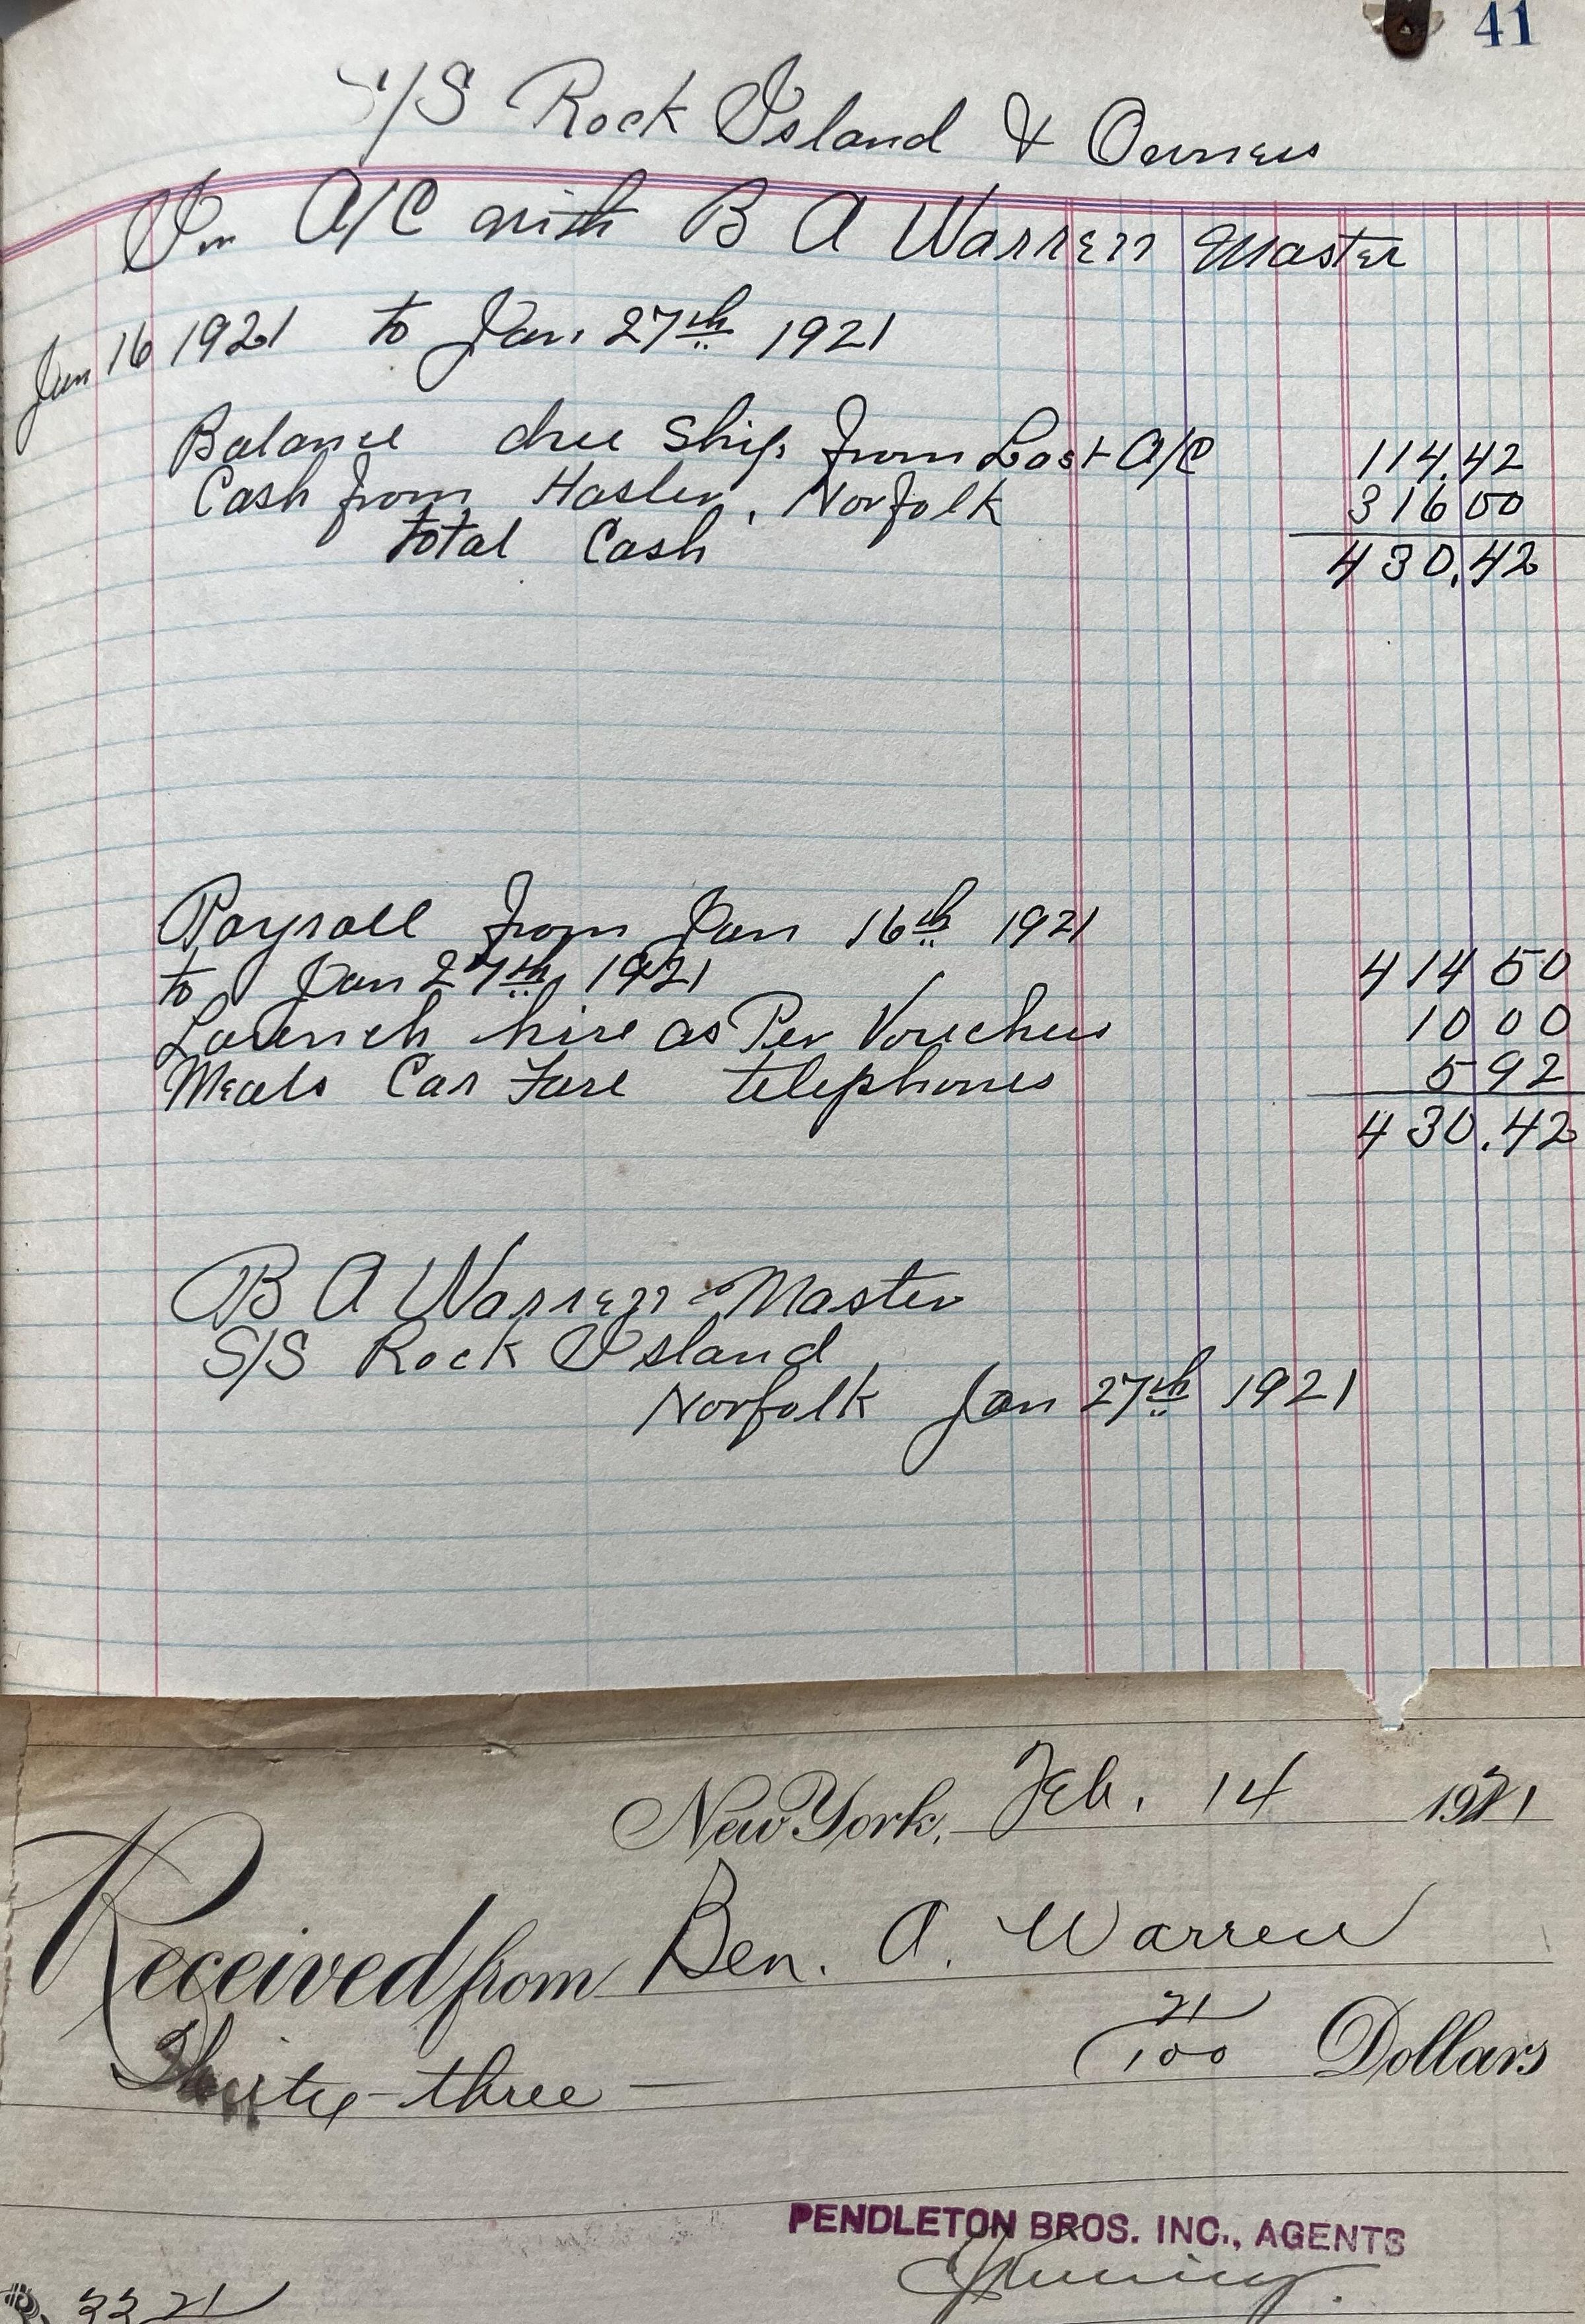 41
S/S Rock Island & Owners
In A/C with B A Warren Master
Jan 16 1921 to Jan. 27th 1921
Balance due Ship. from Last A/C 114.42
Cash from Hasler, Norfolk 316 00
total Cash 430.42
Payroll from Jan 16th 1921
to Jan 27th 1921 414 50
Launch hire as Per Vouchers 10 00
Meals Car Fare telephones 5 92
430.42
B A Warren Master
S/S Rock Island
Norfolk Jan 27th 1921
New York, Feb. 14 1921
Received from Ben. A. Warren
Thirty-three — 21/100 Dollars
PENDLETON BROS. INC., AGENTS
33 21